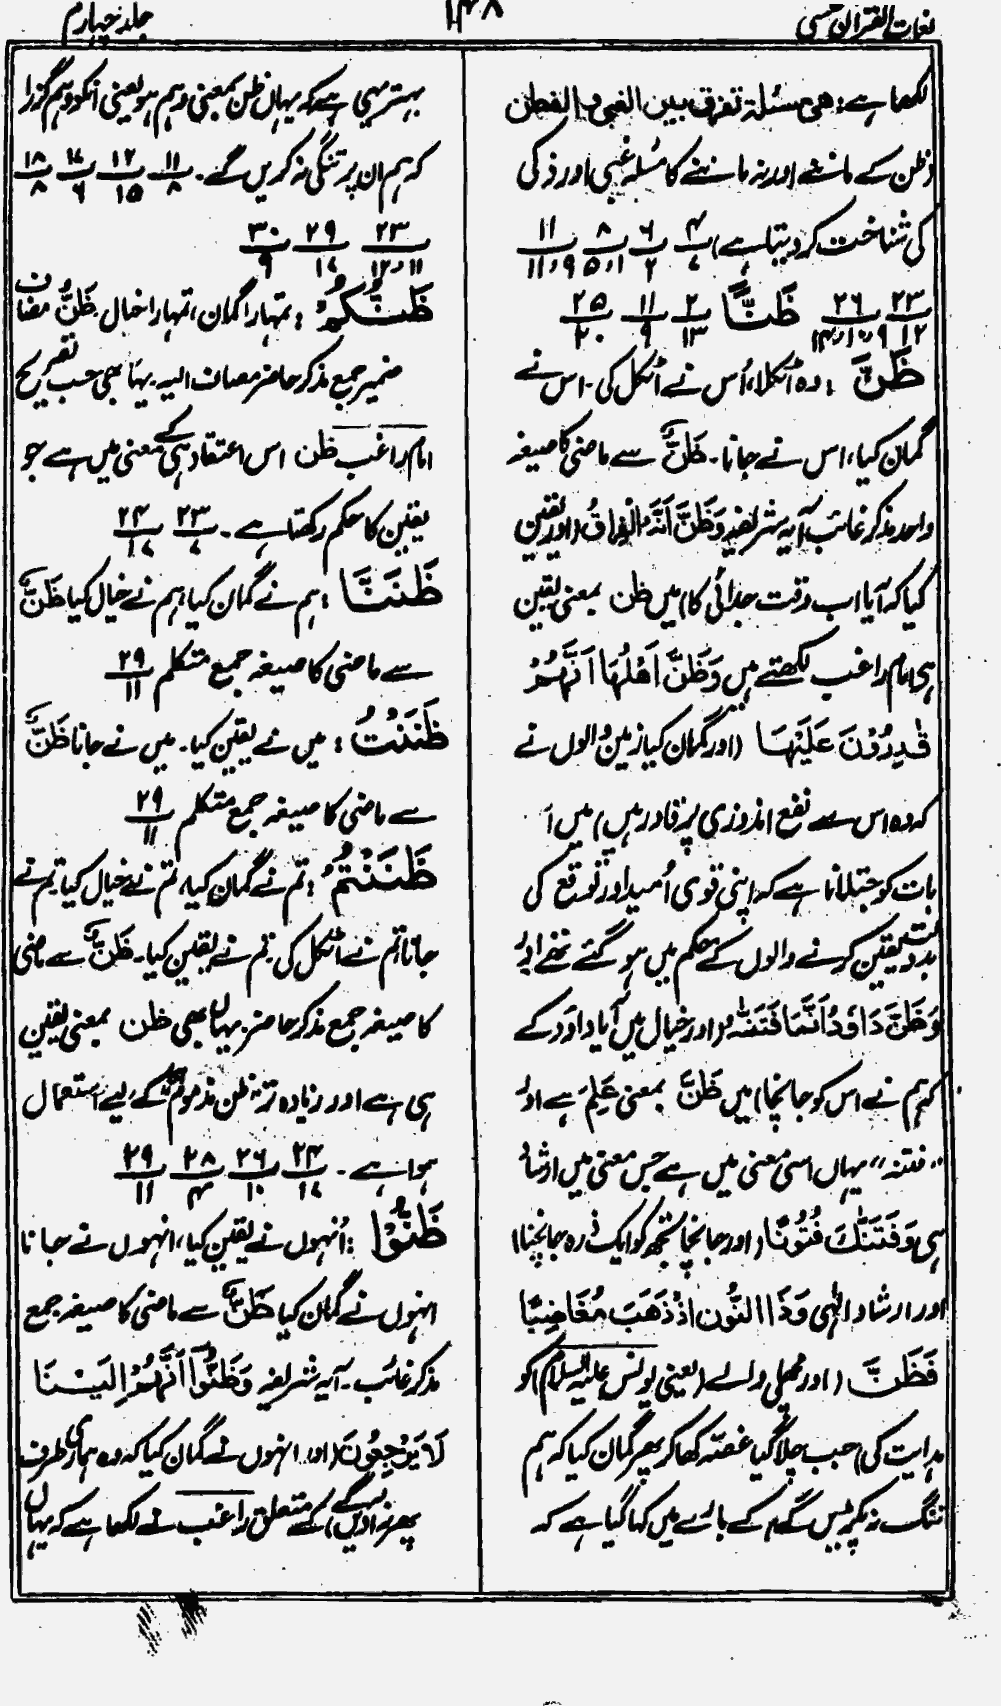 لغات القرآن حسی
۱۴۸
جلد چہارم
لکھا ہے: ھی مسئلۃ تفرق بین الغبی و الفطن
ظن کے ماننے اور نہ ماننے کا مسئلہ غبی اور ذکی
کی شناخت کر دیتا ہے) ۴/۷ ۶/۲ ۸/۱،۵ ۱۱/۹،۱۱
۲۳/۱۲ ۲۶/۹،۱۰،۱۴ ظَنًّا ۲/۱۳ ۱۱/۹ ۲۵/۲۰
ظَنَّ : وہ اٹکلا، اُس نے اٹکل کی۔ اس نے
گمان کیا، اس نے جانا۔ ظَنٌّ سے ماضی کا صیغہ
واحد مذکر غائب۔ آیہ شریفہ وَظَنَّ اَنَّهُ الْفِرَاقُ (اور یقین
کیا کہ آیا اب وقت جدائی کا) میں ظن بمعنی یقین
ہی امام راغب لکھتے ہیں وَظَنَّ اَهْلُهَا اَنَّهُمْ
قٰدِرُوْنَ عَلَيْهَا (اور گمان کیا زمین والوں نے
کہ وہ اس سے نفع اندوزی پر قادر ہیں) میں اَ
بات کو جتلانا ہے کہ اپنی قوی اُمید اور توقع کی
یقین کرنے والوں کے حکم میں ہو گئے تھے اور
وَظَنَّ دَاوٗدُ اَنَّمَا فَتَنّٰهُ (اور خیال میں آیا داؤد کے
کہ ہم نے اس کو جانچا) میں ظَنَّ بمعنی عَلِمَ ہے اور
”فتنہ“ یہاں اسی معنی میں ہے جس معنی میں ارشاد
ہی وَفَتَنّٰكَ فُتُوْنًا (اور جانچا تجھ کو ایک ذرہ جانچنا)
اور ارشاد الٰہی وَذَا النُّونِ اِذْ ذَهَبَ مُغَاضِبًا
فَظَنَّ (اور مچھلی والے (یعنی یونس علیہ السلام) کو
ہدایت کی) جب چلا گیا غصّہ کھا کر پھر گمان کیا کہ ہم
تنگ نہ پکڑیں گے) کے بارے میں کہا گیا ہے کہ
بہتر یہی ہے کہ یہاں ظن بمعنی وہم ہو یعنی انکو وہم گزرا
کہ ہم ان پر تنگی نہ کریں گے۔ ۱۱/۸ ۱۲/۱۵ ۱۷/۶ ۱۸/۸
۲۳/۱۱،۱۲ ۲۹/۱۷ ۳۰/۹
ظَنُّكُمْ : تمہارا گمان، تمہارا خیال۔ ظَنُّ مضاف
ضمیر جمع مذکر حاضر مضاف الیہ۔ یہاں بھی حسب تصریح
امام راغب ظن اس اعتقاد ہی کے معنی میں ہے جو
یقین کا حکم رکھتا ہے۔ ۲۳/۷ ۲۴/۱۷
ظَنَنَّا : ہم نے گمان کیا، ہم نے خیال کیا ظَنٌّ
سے ماضی کا صیغہ جمع متکلم ۲۹/۱۱
ظَنَنْتُ : میں نے یقین کیا۔ میں نے جانا ظَنٌّ
سے ماضی کا صیغہ جمع متکلم ۲۹/۱۱
ظَنَنْتُمْ : تم نے گمان کیا، تم نے خیال کیا تم نے
جانا، تم نے اٹکل کی۔ تم نے یقین کیا۔ ظَنٌّ سے ماضی
کا صیغہ جمع مذکر حاضر۔ یہاں بھی ظن بمعنی یقین
ہی ہے اور زیادہ تر ظن مذموم کے لیے استعمال
ہوا ہے۔ ۲۴/۱۷ ۲۶/۱۰ ۲۸/۴ ۲۹/۱۱
ظَنُّوْا : اُنہوں نے یقین کیا، انہوں نے جانا
انہوں نے گمان کیا ظَنٌّ سے ماضی کا صیغہ جمع
مذکر غائب۔ آیہ شریفہ وَظَنُّوْا اَنَّهُمْ اِلَيْنَا
لَا يَرْجِعُوْنَ (اور انہوں نے گمان کیا کہ وہ ہماری طرف
پھر نہ آئیں گے) کے متعلق راغب نے لکھا ہے کہ یہاں